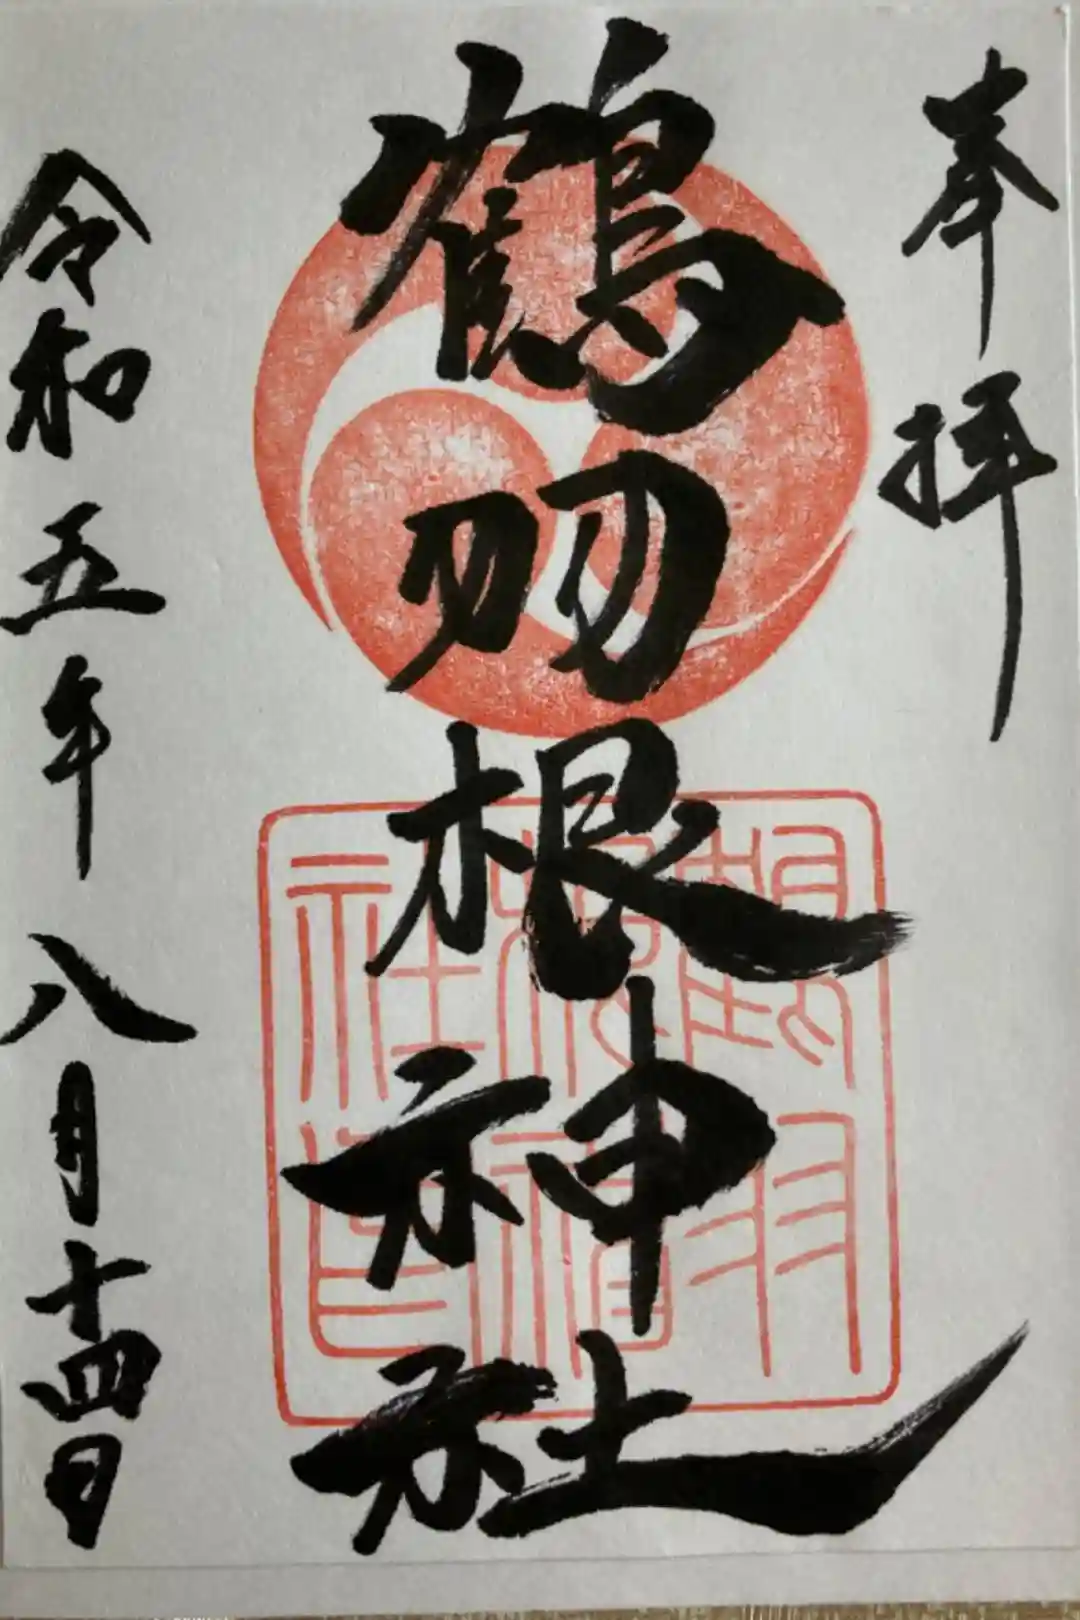 奉拝
鶴羽根神社
鶴羽
根神
社印
令和五年八月十四日